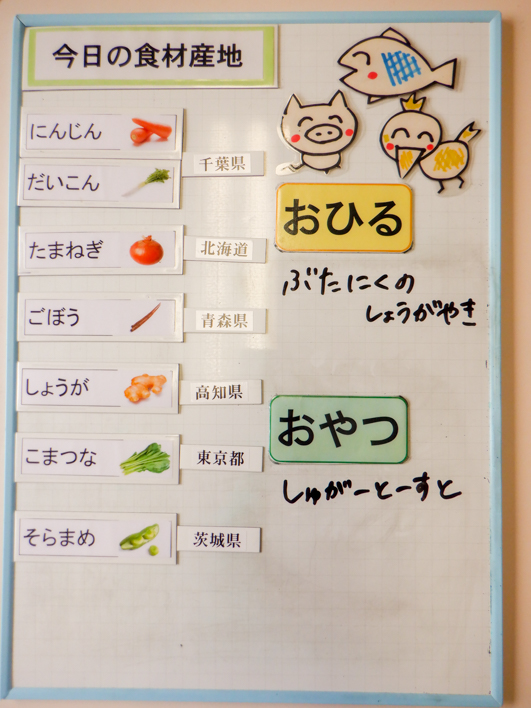 今日の食材産地
にんじん
だいこん
千葉県
たまねぎ
北海道
ごぼう
青森県
しょうが
高知県
こまつな
東京都
そらまめ
茨城県
おひる
ぶたにくの
しょうがやき
おやつ
しゅがーとーすと